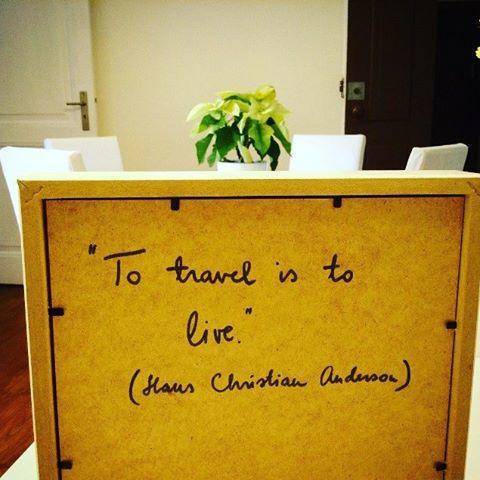 "To travel is to
live."
(Hans Christian Anderson)